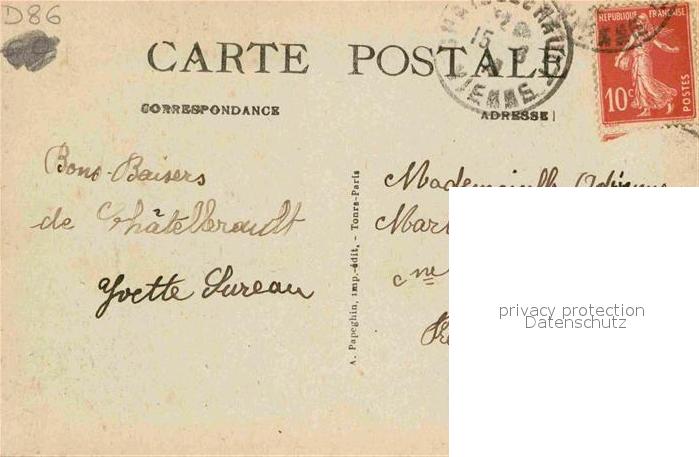 D86
CARTE POSTALE
REPUBLIQUE FRANÇAISE
10c
POSTES
VIENNE
CORRESPONDANCE
ADRESSE
Bons Baisers
de Châtellerault
Yvette Sureau
A. Papeghin, imp.-édit. - Tours-Paris
Mademoiselle
privacy protection
Datenschutz